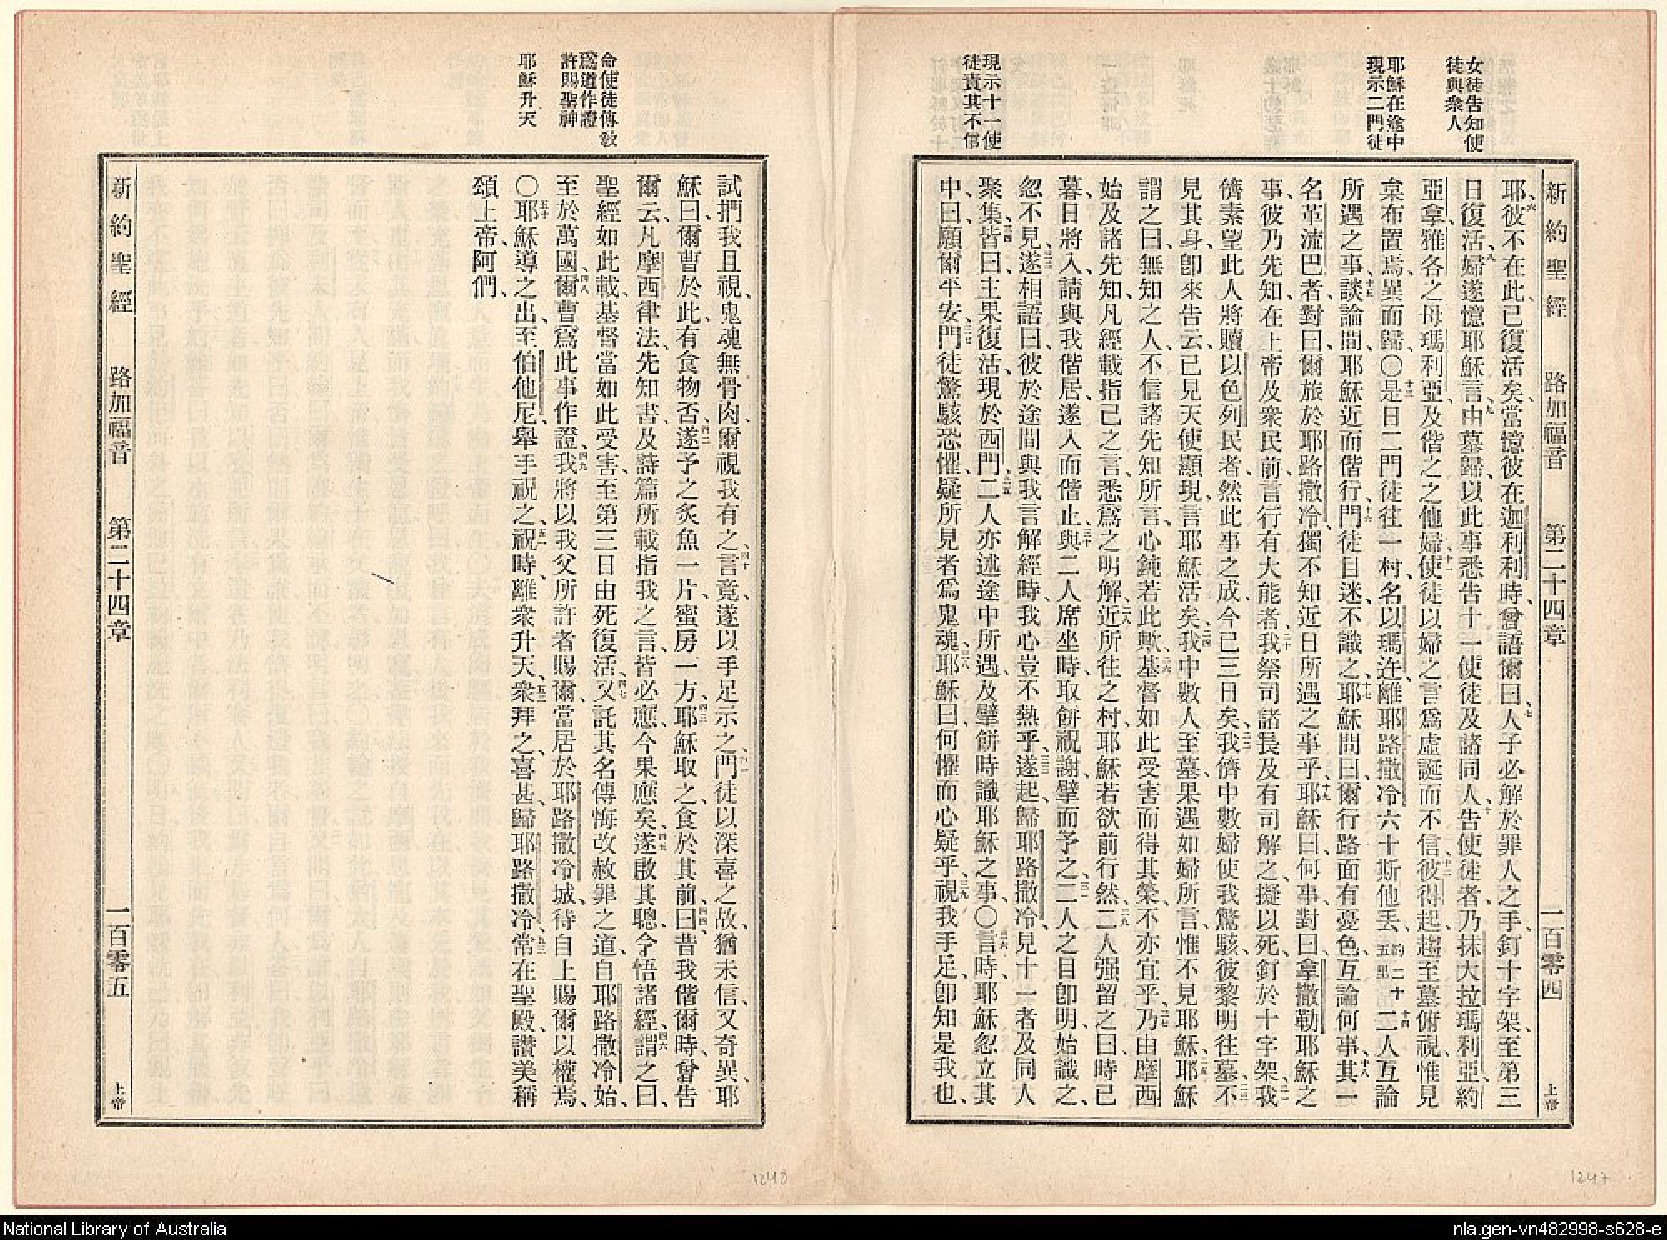 女徒告知使
徒與衆人
耶穌在途中
現示二門徒
現示十一使
徒責其不信
新約聖經 路加福音 第二十四章 一百零四 上帝
耶、彼不在此、已復活矣、當憶彼在迦利利時、曾語爾曰、人子必解於罪人之手、釘十字架、至第三
日復活、婦遂憶耶穌言、由墓歸、以此事悉告十一使徒及諸同人、告使徒者、乃抹大拉瑪利亞、約
亞拿、雅各之母瑪利亞、及偕之之他婦、使徒以婦之言爲虛誕而不信、彼得起、趨至墓、俯視、惟見
枲布置焉、異而歸、○是日二門徒往一村、名以瑪迕、離耶路撒冷六十斯他丟、約二十五里 二人互論
所遇之事、談論間、耶穌近而偕行、門徒目迷不識之、耶穌問曰、爾行路面有憂色、互論何事、其一
名革流巴者、對曰、爾旅於耶路撒冷、獨不知近日所遇之事乎、耶穌曰、何事、對曰、拿撒勒耶穌之
事、彼乃先知、在上帝及衆民前、言行有大能者、我祭司諸長及有司解之、擬以死、釘於十字架、我
儕素望此人將贖以色列民者、然此事之成、今已三日矣、我儕中數婦使我驚駭、彼黎明往墓、不
見其身、卽來告云、已見天使顯現、言耶穌活矣、我中數人至墓、果遇如婦所言、惟不見耶穌、耶穌
謂之曰、無知之人、不信諸先知所言、心鈍若此歟、基督如此受害而得其榮、不亦宜乎、乃由摩西
始、及諸先知、凡經載指己之言、悉爲之明解、近所往之村、耶穌若欲前行然、二人强留之曰、時已
暮、日將入、請與我偕居、遂入而偕止、與二人席坐時、取餅祝謝、擘而予之、二人之目卽明、始識之、
忽不見、遂相語曰、彼於途間與我言解經時、我心豈不熱乎、遂起歸耶路撒冷、見十一者及同人
聚集、皆曰、主果復活、現於西門、二人亦述途中所遇、及擘餅時識耶穌之事、○言時、耶穌忽立其
中曰、願爾平安、門徒驚駭恐懼、疑所見者爲鬼魂、耶穌曰、何懼而心疑乎、視我手足、卽知是我也、
命使徒傳敎
爲道作證
許賜聖神
耶穌升天
試捫我且視、鬼魂無骨肉、爾視我有之、言竟、遂以手足示之、門徒以深喜之故、猶未信、又奇異、耶
穌曰、爾曹於此有食物否、遂予之炙魚一片、蜜房一方、耶穌取之、食於其前、曰、昔我偕爾時、曾告
爾云、凡摩西律法、先知書、及詩篇所載指我之言、皆必應、今果應矣、遂啟其聰、令悟諸經、謂之曰、
聖經如此載、基督當如此受害、至第三日由死復活、又託其名傳悔改赦罪之道、自耶路撒冷始、
至於萬國、爾曹爲此事作證、我將以我父所許者賜爾、當居於耶路撒冷城、待自上賜爾以權焉、
○耶穌導之出、至伯他尼、舉手祝之、祝時、離衆升天、衆拜之、喜甚、歸耶路撒冷、常在聖殿、讚美稱
頌上帝、阿們、
新約聖經 路加福音 第二十四章 一百零五 上帝
1248
1247
National Library of Australia
nla.gen-vn482998-s628-e